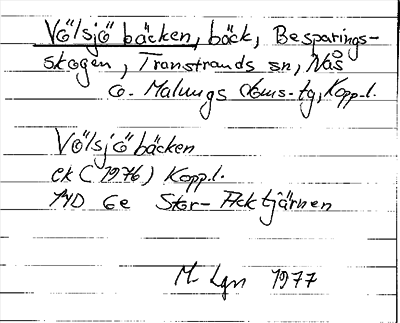 Völsjöbäcken, bäck, Besparings-
skogen, Transtrands sn, Nås
o. Malungs doms-tg, Kopp.l.
Völsjöbäcken
ek (1976) Kopp.l.
14D 6e Stor-Acktjärnen
M. Lgn 1977